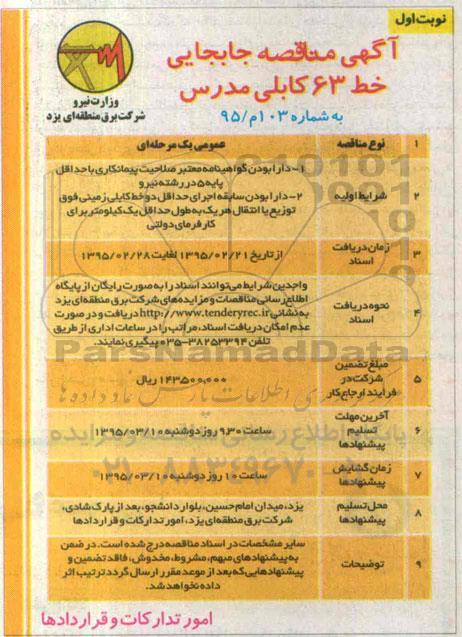 نوبت اول
آگهی مناقصه جابجایی
خط ۶۳ کابلی مدرس
به شماره ۱۰۳م/۹۵
وزارت نیرو
شرکت برق منطقه‌ای یزد
۱ نوع مناقصه عمومی یک مرحله‌ای
۲ شرایط اولیه
۱- دارا بودن گواهینامه معتبر صلاحیت پیمانکاری با حداقل
پایه ۵ در رشته نیرو
۲- دارا بودن سابقه اجرای حداقل دو خط کابلی زمینی فوق
توزیع یا انتقال هر یک به طول حداقل یک کیلومتر برای
کارفرمای دولتی
۳ زمان دریافت
اسناد
از تاریخ ۱۳۹۵/۰۲/۲۱ لغایت ۱۳۹۵/۰۲/۲۸
۴ نحوه دریافت
اسناد
واجدین شرایط می‌توانند اسناد را به صورت رایگان از پایگاه
اطلاع رسانی مناقصات و مزایده‌های شرکت برق منطقه‌ای یزد
به نشانی http://www.tenderyrec.ir دریافت و در صورت
عدم امکان دریافت اسناد، مراتب را در ساعات اداری از طریق
تلفن ۳۸۲۵۳۳۹۴-۰۳۵ پیگیری نمایند.
۵ مبلغ تضمین
شرکت در
فرایند ارجاع کار
۱۴۳۵۰۰,۰۰۰ ریال
۶ آخرین مهلت
تسلیم
پیشنهادها
ساعت ۹,۳۰ روز دوشنبه ۱۳۹۵/۰۳/۱۰
۷ زمان گشایش
پیشنهادها
ساعت ۱۰ روز دوشنبه ۱۳۹۵/۰۳/۱۰
۸ محل تسلیم
پیشنهادها
یزد، میدان امام حسین، بلوار دانشجو، بعد از پارک شادی،
شرکت برق منطقه‌ای یزد، امور تدارکات و قراردادها
۹ توضیحات
سایر مشخصات در اسناد مناقصه درج شده است. در ضمن
به پیشنهادهای مبهم، مشروط، مخدوش، فاقد تضمین و
پیشنهادهایی که بعد از موعد مقرر ارسال گردد ترتیب اثر
داده نخواهد شد.
امور تدارکات و قراردادها
ParsNamadData